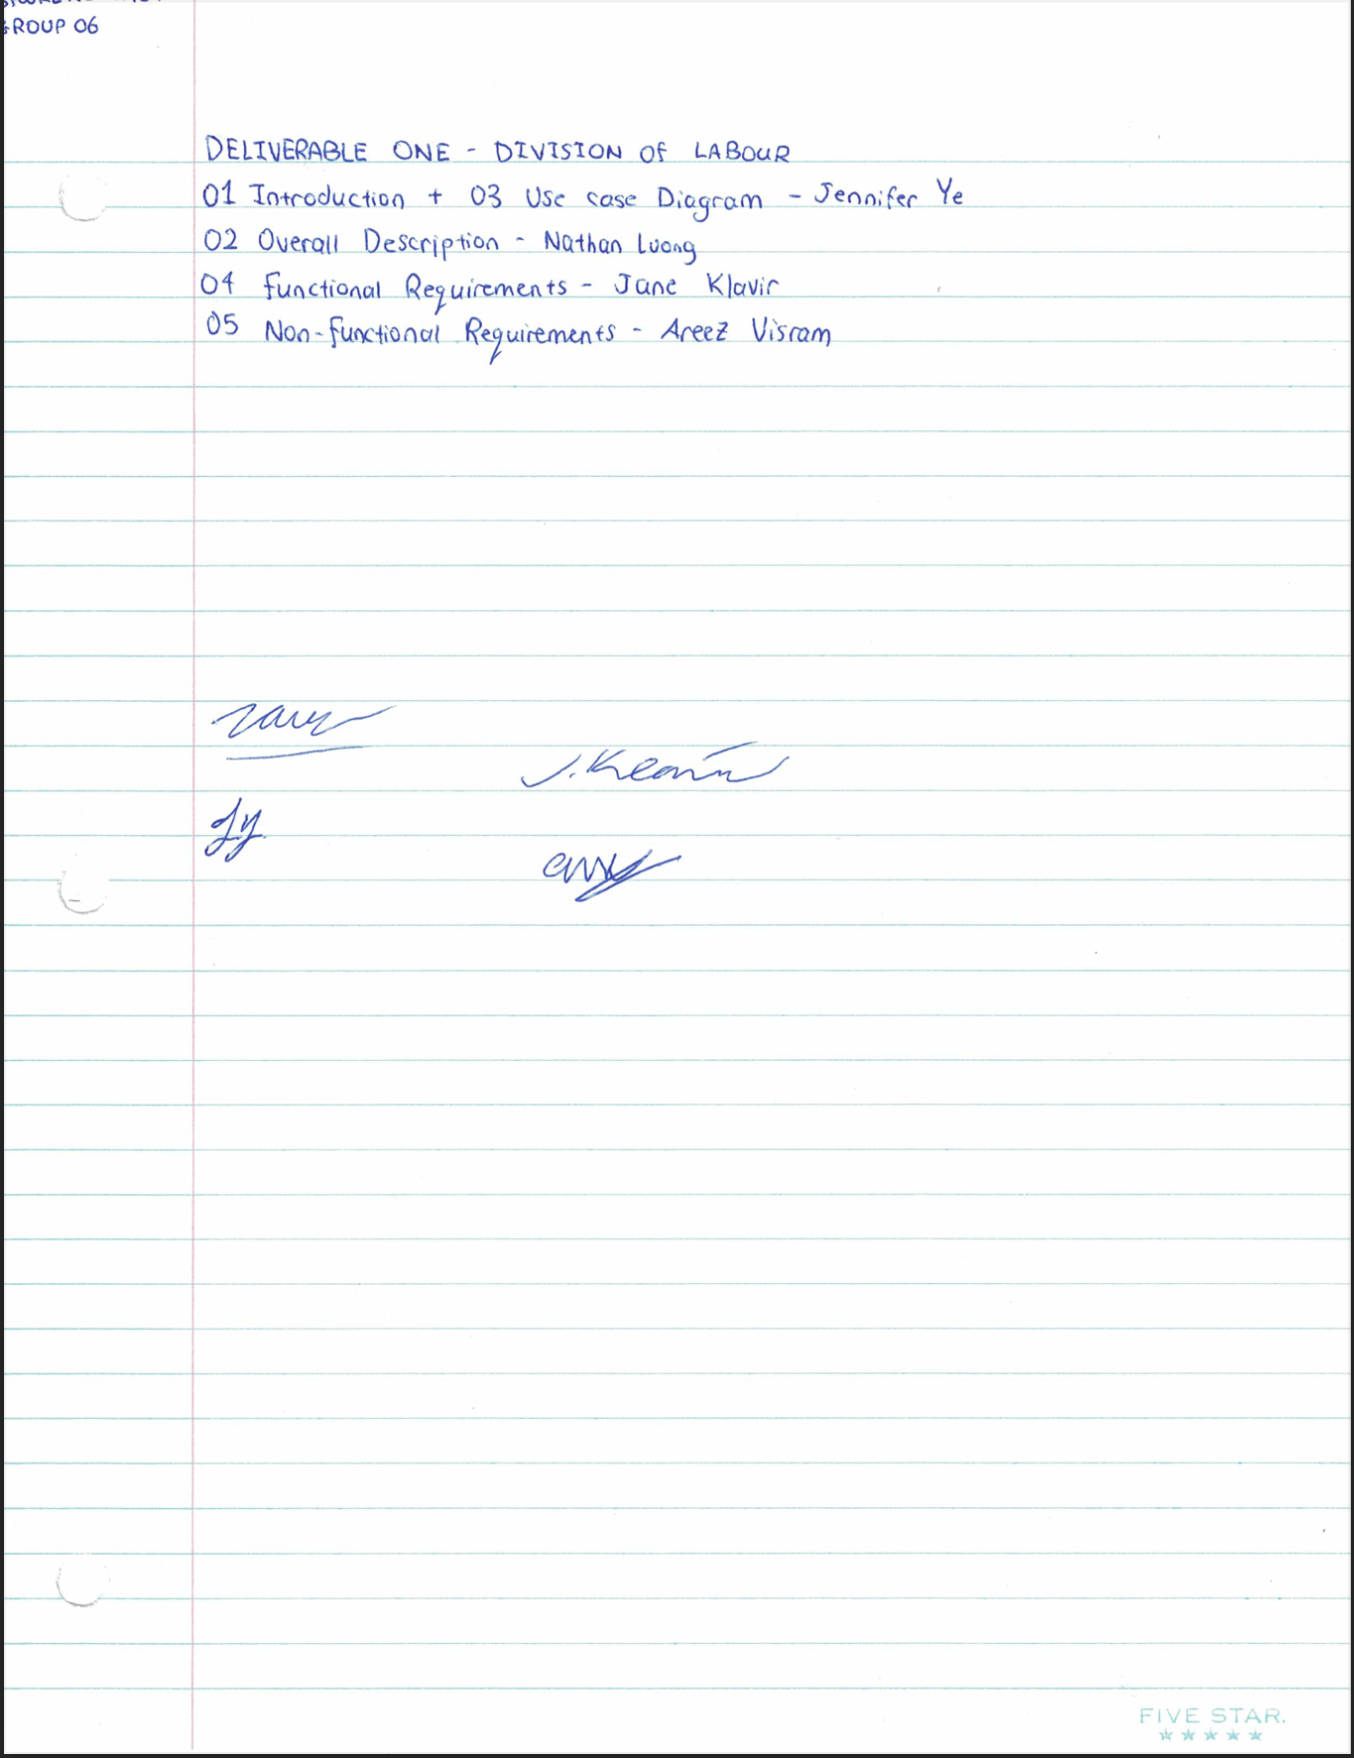 GROUP 06
DELIVERABLE ONE - DIVISION OF LABOUR
01 Introduction + 03 Use case Diagram - Jennifer Ye
02 Overall Description - Nathan Luong
04 Functional Requirements - Jane Klavir
05 Non-functional Requirements - Areez Visram
J. Klavir
FIVE STAR.